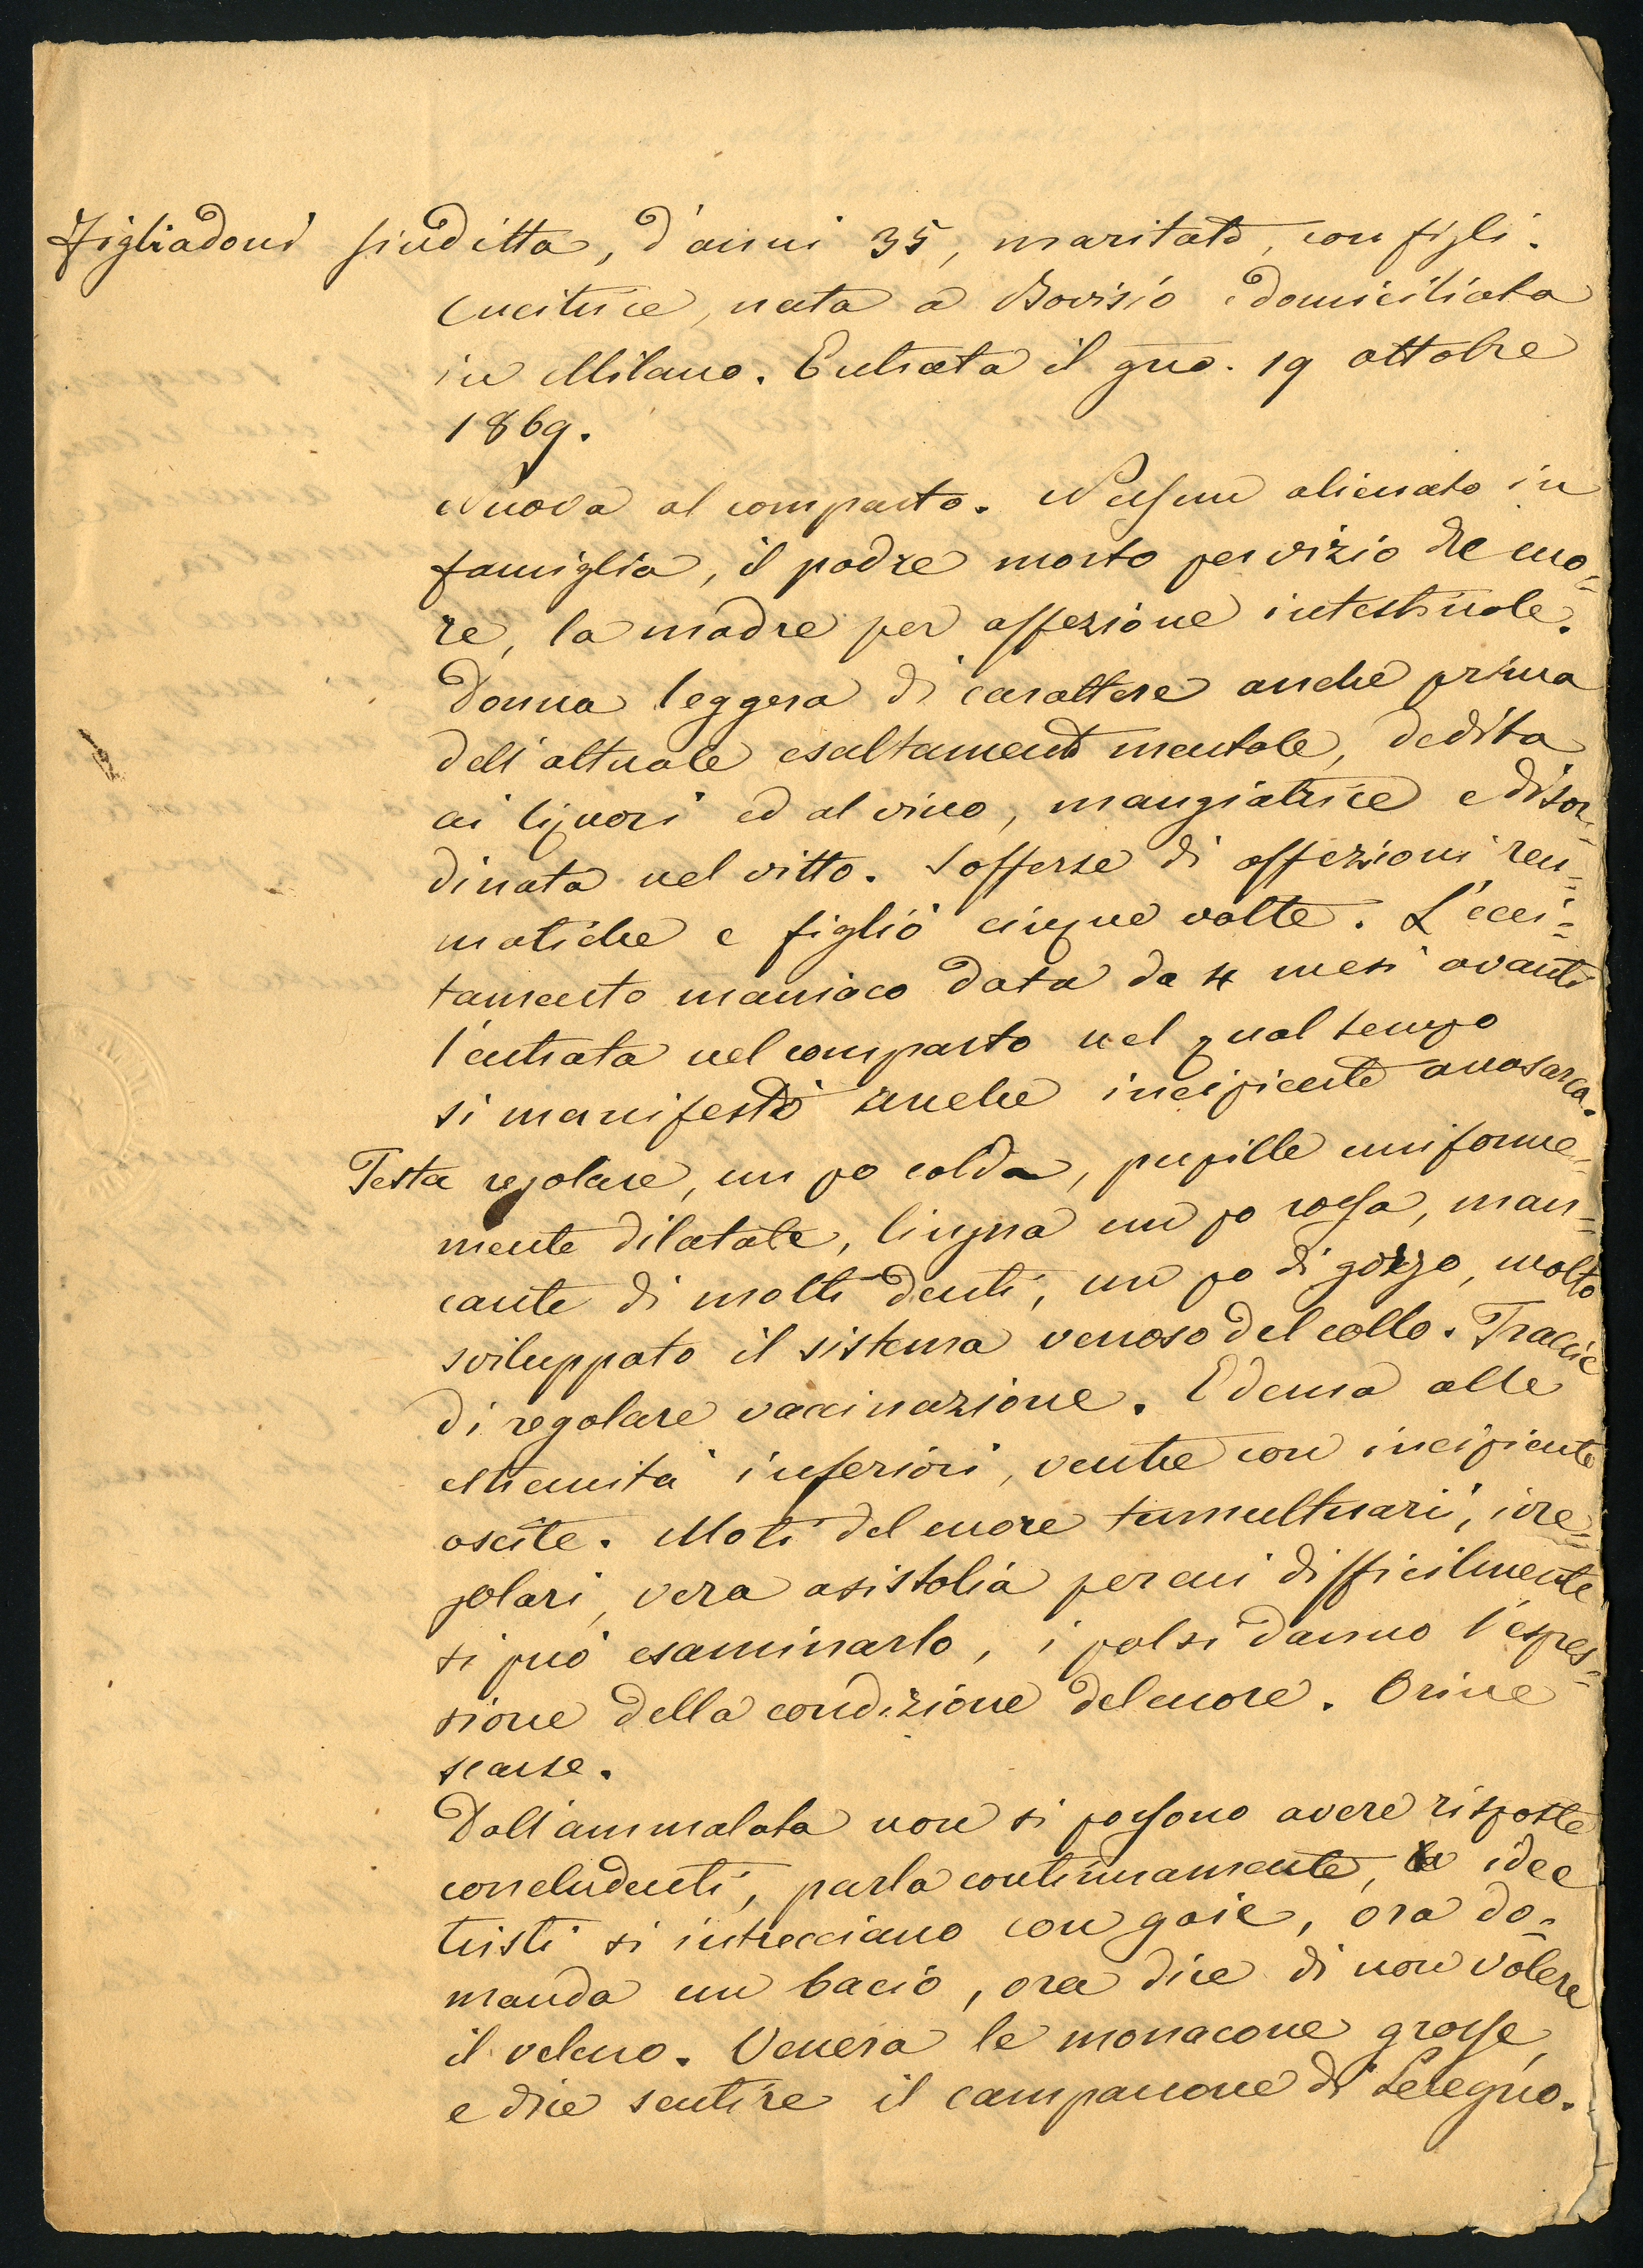 Figliadoni Giuditta, d'anni 35, maritata, con figli.
Cucitrice, nata a Bovisio e domiciliata
in Milano. Entrata il gno. 19 ottobre
1869.
Nuova al comparto. Nessun alienato in
famiglia, il padre morto per vizio di cuo=
re, la madre per affezione intestinale.
Donna leggera di carattere anche prima
dell'attuale esaltamento mentale, dedita
ai liquori ed al vino, mangiatrice e disor=
dinata nel vitto. Sofferse di affezioni reu=
matiche e figliò cinque volte. L'ecci=
tamento maniaco data da 4 mesi avanti
l'entrata nel comparto nel qual tempo
si manifestò anche incipiente anasarca.
Testa regolare, un po calda, pupille uniforme=
mente dilatate, lingua un po rossa, man=
cante di molti denti, un po di gozzo, molto
sviluppato il sistema venoso del collo. Traccie
di regolare vaccinazione. Edema alle
estremità inferiori, ventre con incipiente
ascite. Moti del cuore tumultuari, irre=
golari, vera asistolia per cui difficilmente
si può esaminarlo, i polsi danno l'espres=
sione della condizione del cuore. Orine
scarse.
Dall'ammalata non si possono avere risposte
concludenti, parla continuamente, le idee
tristi si intrecciano con gaie, ora do=
manda un bacio, ora dice di non volere
il veleno. Venera le monacone grosse,
e dice sentire il campanone di